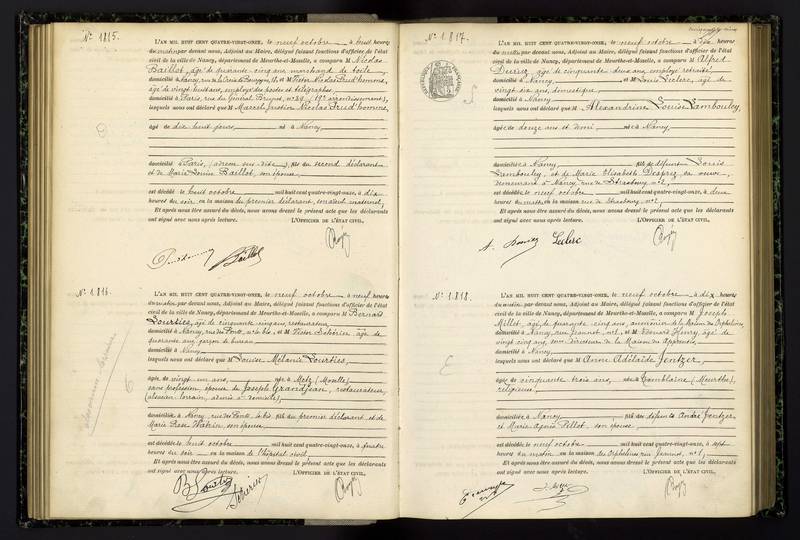 N° 1815.
L'AN MIL HUIT CENT QUATRE-VINGT-ONZE, le neuf octobre à huit heures
du matin par devant nous, Adjoint au Maire, délégué faisant fonctions d'officier de l'état
civil de la ville de Nancy, département de Meurthe-et-Moselle, a comparu M Nicolas
Baillot, âgé de quarante-cinq ans, marchand de toile
domicilié à Nancy, et M Victor Nicolas Prud'homme,
âgé de vingt-huit ans, employé des postes et télégraphes
domicilié à Paris, rue du Général Brunet, n° 29 (19e arrondissement),
lesquels nous ont déclaré que M Marcel Justin Nicolas Prud'homme,
âgé de dix huit jours, né à Nancy,
domicilié à Paris, (adresse sus-dite), fils du second déclarant
et de Marie Louise Baillot, son épouse,
est décédé, le huit octobre mil huit cent quatre-vingt-onze, à dix
heures du soir en la maison du premier déclarant, son aïeul maternel,
Et après nous être assuré du décès, nous avons dressé le présent acte que les déclarants
ont signé avec nous après lecture. L'OFFICIER DE L'ÉTAT CIVIL,
Prudhomme Baillot
N° 1.816.
L'AN MIL HUIT CENT QUATRE-VINGT-ONZE, le neuf octobre à neuf heures
du matin par devant nous, Adjoint au Maire, délégué faisant fonctions d'officier de l'état
civil de la ville de Nancy, département de Meurthe-et-Moselle, a comparu M Bernard
Sourties, âgé de cinquante cinq ans, restaurateur
domicilié à Nancy, et M Victor Schérier âgé de
quarante ans, garçon de bureau
domicilié à Nancy
lesquels nous ont déclaré que M Louise Mélanie Sourties,
âgée de vingt un ans, née à Metz (Moselle)
sans profession, épouse de Joseph Grandjean, restaurateur,
(alsacien-lorrain, admis à domicile),
domiciliée à Nancy, fille du premier déclarant et de
Marie Rose Watrin, son épouse
est décédée, le huit octobre mil huit cent quatre-vingt-onze, à quatre
heures du soir en la maison de l'hôpital civil
Et après nous être assuré du décès, nous avons dressé le présent acte que les déclarants
ont signé avec nous après lecture. L'OFFICIER DE L'ÉTAT CIVIL,
N° 1.817.
L'AN MIL HUIT CENT QUATRE-VINGT-ONZE, le neuf octobre à dix heures
du matin par devant nous, Adjoint au Maire, délégué faisant fonctions d'officier de l'état
civil de la ville de Nancy, département de Meurthe-et-Moselle, a comparu M Alfred
âgé de cinquante deux ans, employé retraité
domicilié à Nancy, et M Louis Leclerc, âgé de
vingt six ans, domestique
domicilié à Nancy
lesquels nous ont déclaré que M Alexandrine Louise Lambouley,
âgée de douze ans et demi née à Nancy,
domiciliée à Nancy fille de défunt Louis
Lambouley, et de Marie Elisabeth Desprez sa veuve,
demeurant à Nancy rue de Strasbourg n° 2,
est décédée, le neuf octobre mil huit cent quatre-vingt-onze, à deux
heures du matin en la maison rue de Strasbourg, n° 2,
Et après nous être assuré du décès, nous avons dressé le présent acte que les déclarants
ont signé avec nous après lecture. L'OFFICIER DE L'ÉTAT CIVIL,
Leclerc
N° 1.818.
L'AN MIL HUIT CENT QUATRE-VINGT-ONZE, le neuf octobre à dix heures
du matin par devant nous, Adjoint au Maire, délégué faisant fonctions d'officier de l'état
civil de la ville de Nancy, département de Meurthe-et-Moselle, a comparu M Joseph
Millet, âgé de quarante cinq ans, aumônier de la Maison des Orphelines,
domicilié à Nancy, rue Jeannot, n° 1, et M Edouard Henry, âgé de
vingt cinq ans, sous-directeur de la Maison des Apprentis,
domicilié à Nancy
lesquels nous ont déclaré que M Anne Adélaïde Jentzer,
âgée de cinquante trois ans, née à Tomblaine (Meurthe),
religieuse,
domiciliée à Nancy, fille des défunts André Jentzer,
et Marie Agnès Pellot, son épouse,
est décédée, le neuf octobre mil huit cent quatre-vingt-onze, à sept
heures du matin en la maison des Orphelines rue Jeannot, n° 1,
Et après nous être assuré du décès, nous avons dressé le présent acte que les déclarants
ont signé avec nous après lecture. L'OFFICIER DE L'ÉTAT CIVIL,